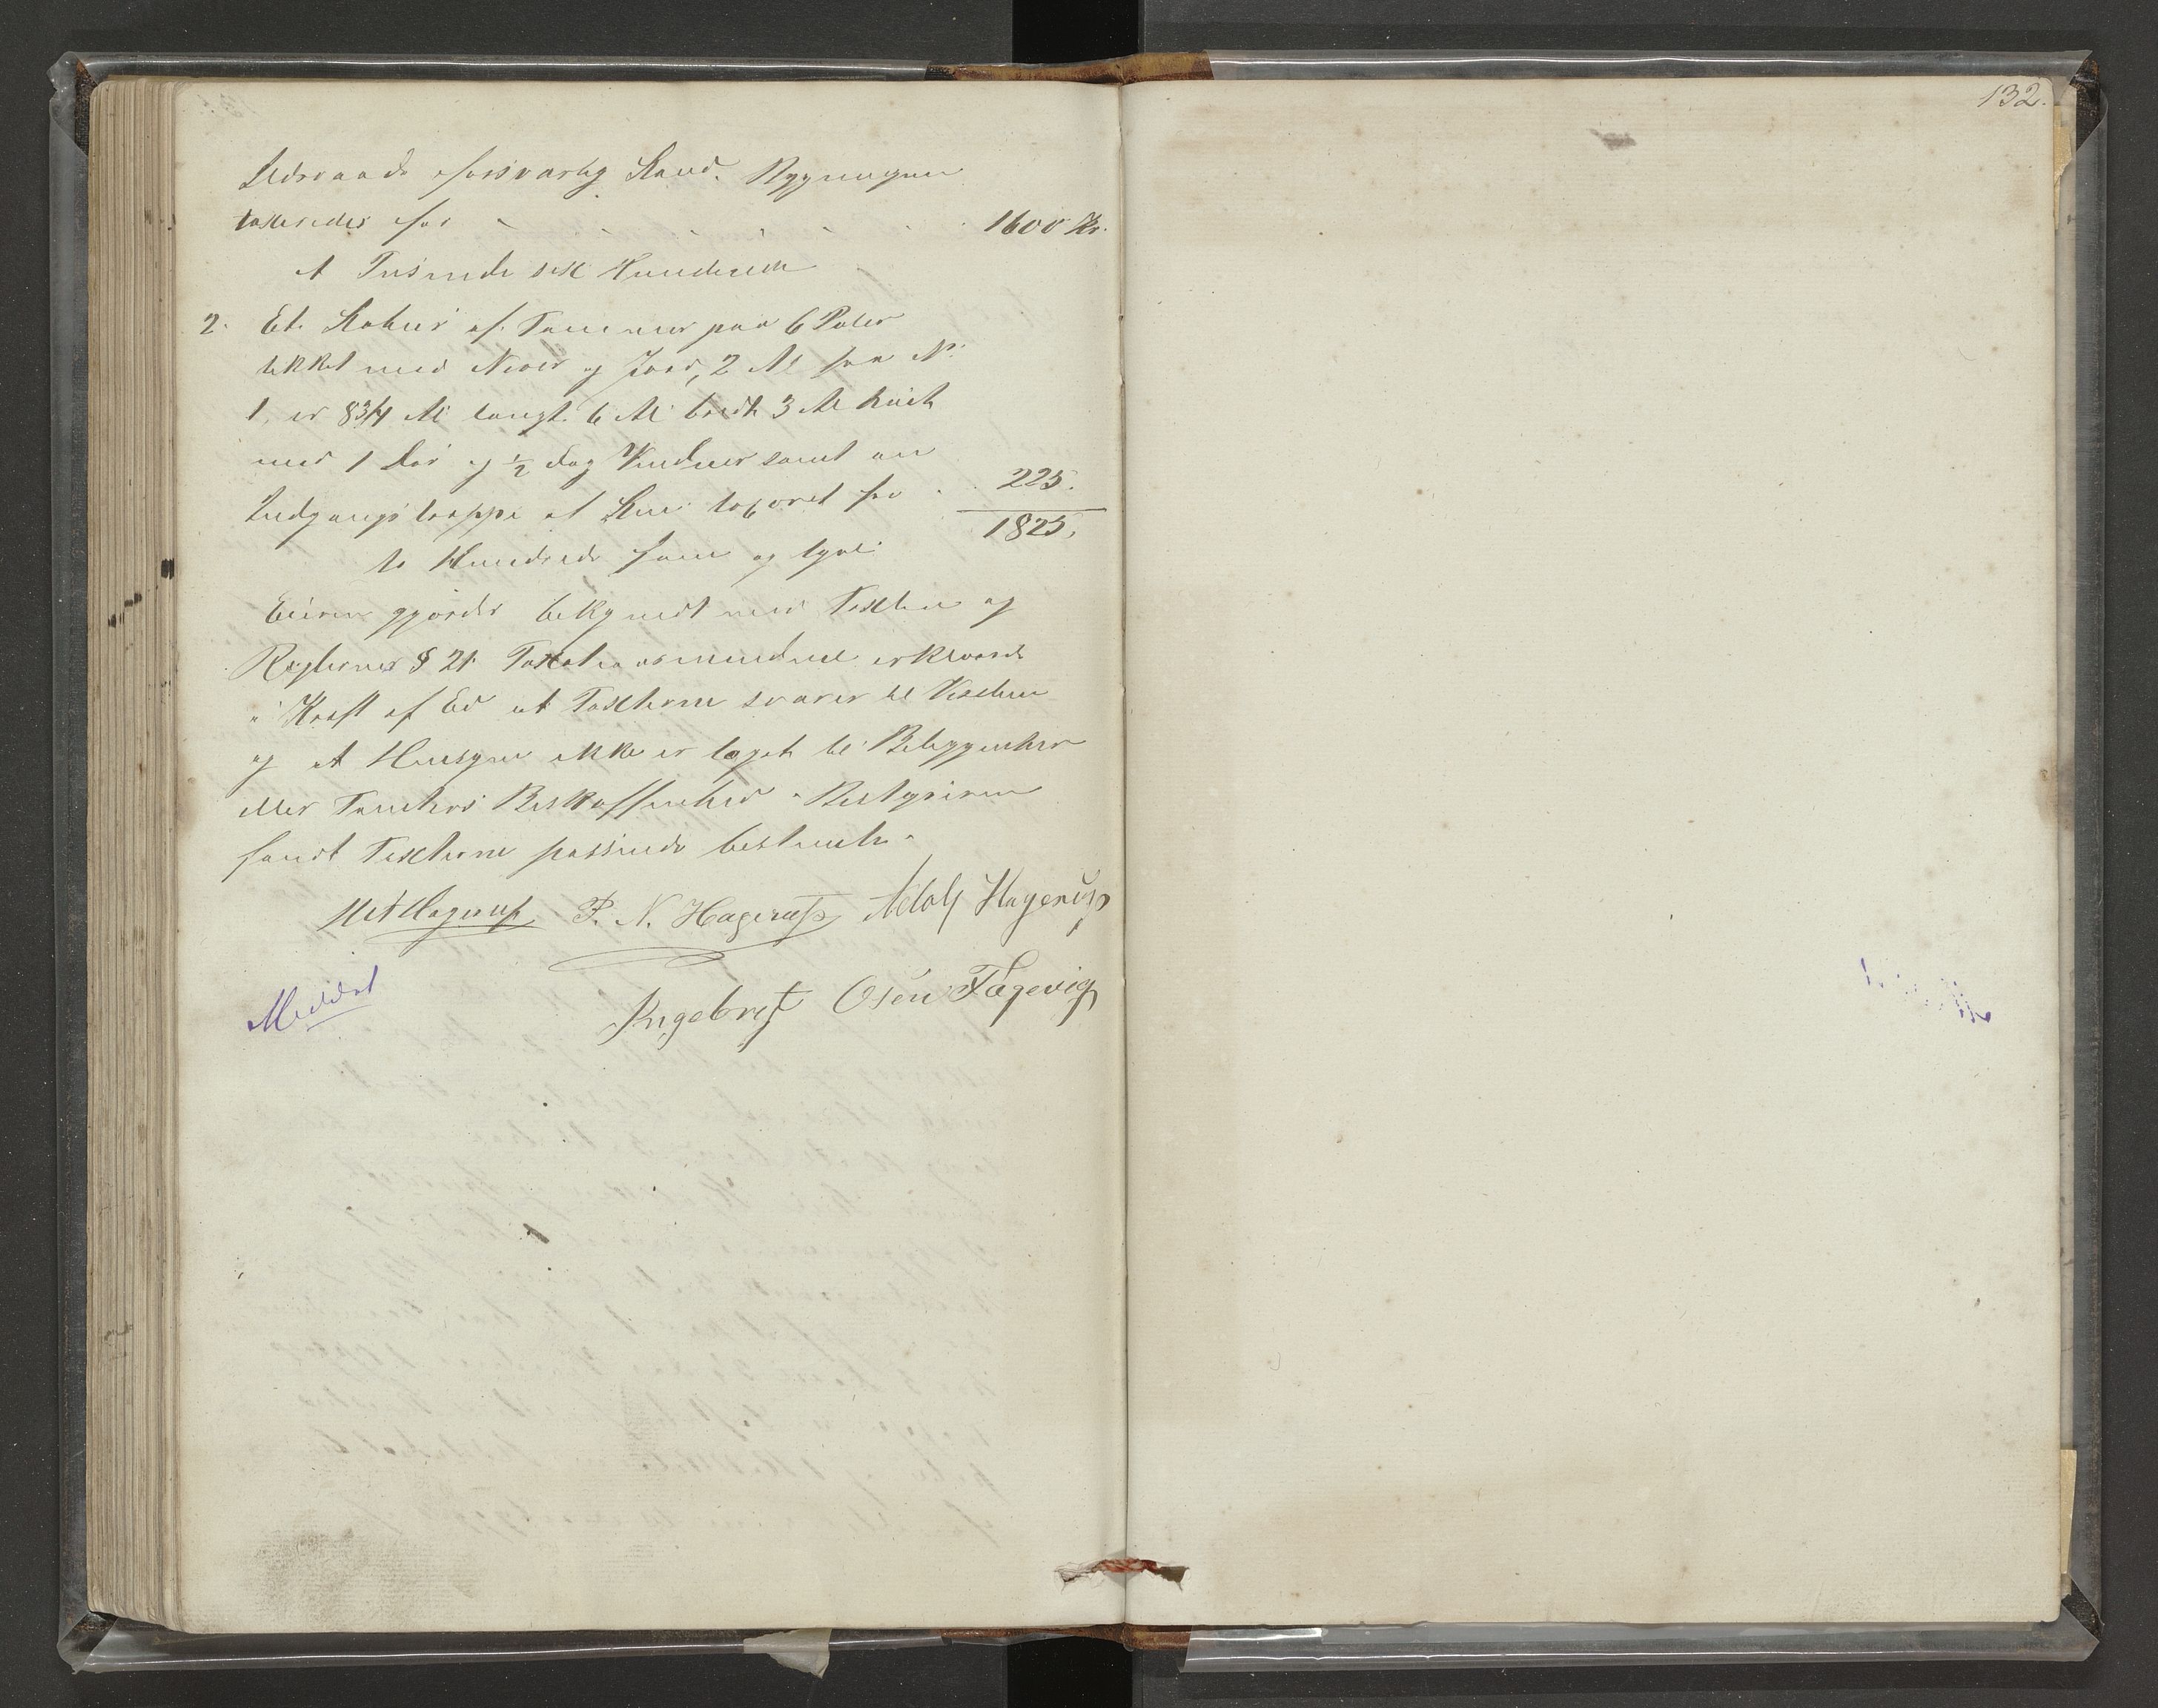 132.
Ildsvaade forsvarlig Stand. Bygningen
taxeredes for - - - - - - 1600 Kr.
et Tusinde sex Hundrede
2. Et Stabur af Tømmer paa 6 Pæler
tækket med Næver og Jord, 2 Al fra N:
1, er 8 3/4 Al langt 6 Al bredt 3 Al høit
med 1 Dør og 1/2 Fag Vinduer samt en
Indgangstrappe af Sten taxeret for . . 225.
1825.
to Hundrede fem og tyve
Eieren gjordes bekjendt med Taxten og
Reglernes § 21. Taxationsmændene erklærede
i Kraft af Ed at Taxterne svarer til Værdien
og at Hensyn ikke er taget til Beliggenhed
eller Tomtens Beskaffenhed. Bestyreren
fandt Taxterne passende bestemte.
Hagerup P. N. Hagerup Adolf Hagerup
Ingebregt Osen Fagervig
Meddelt